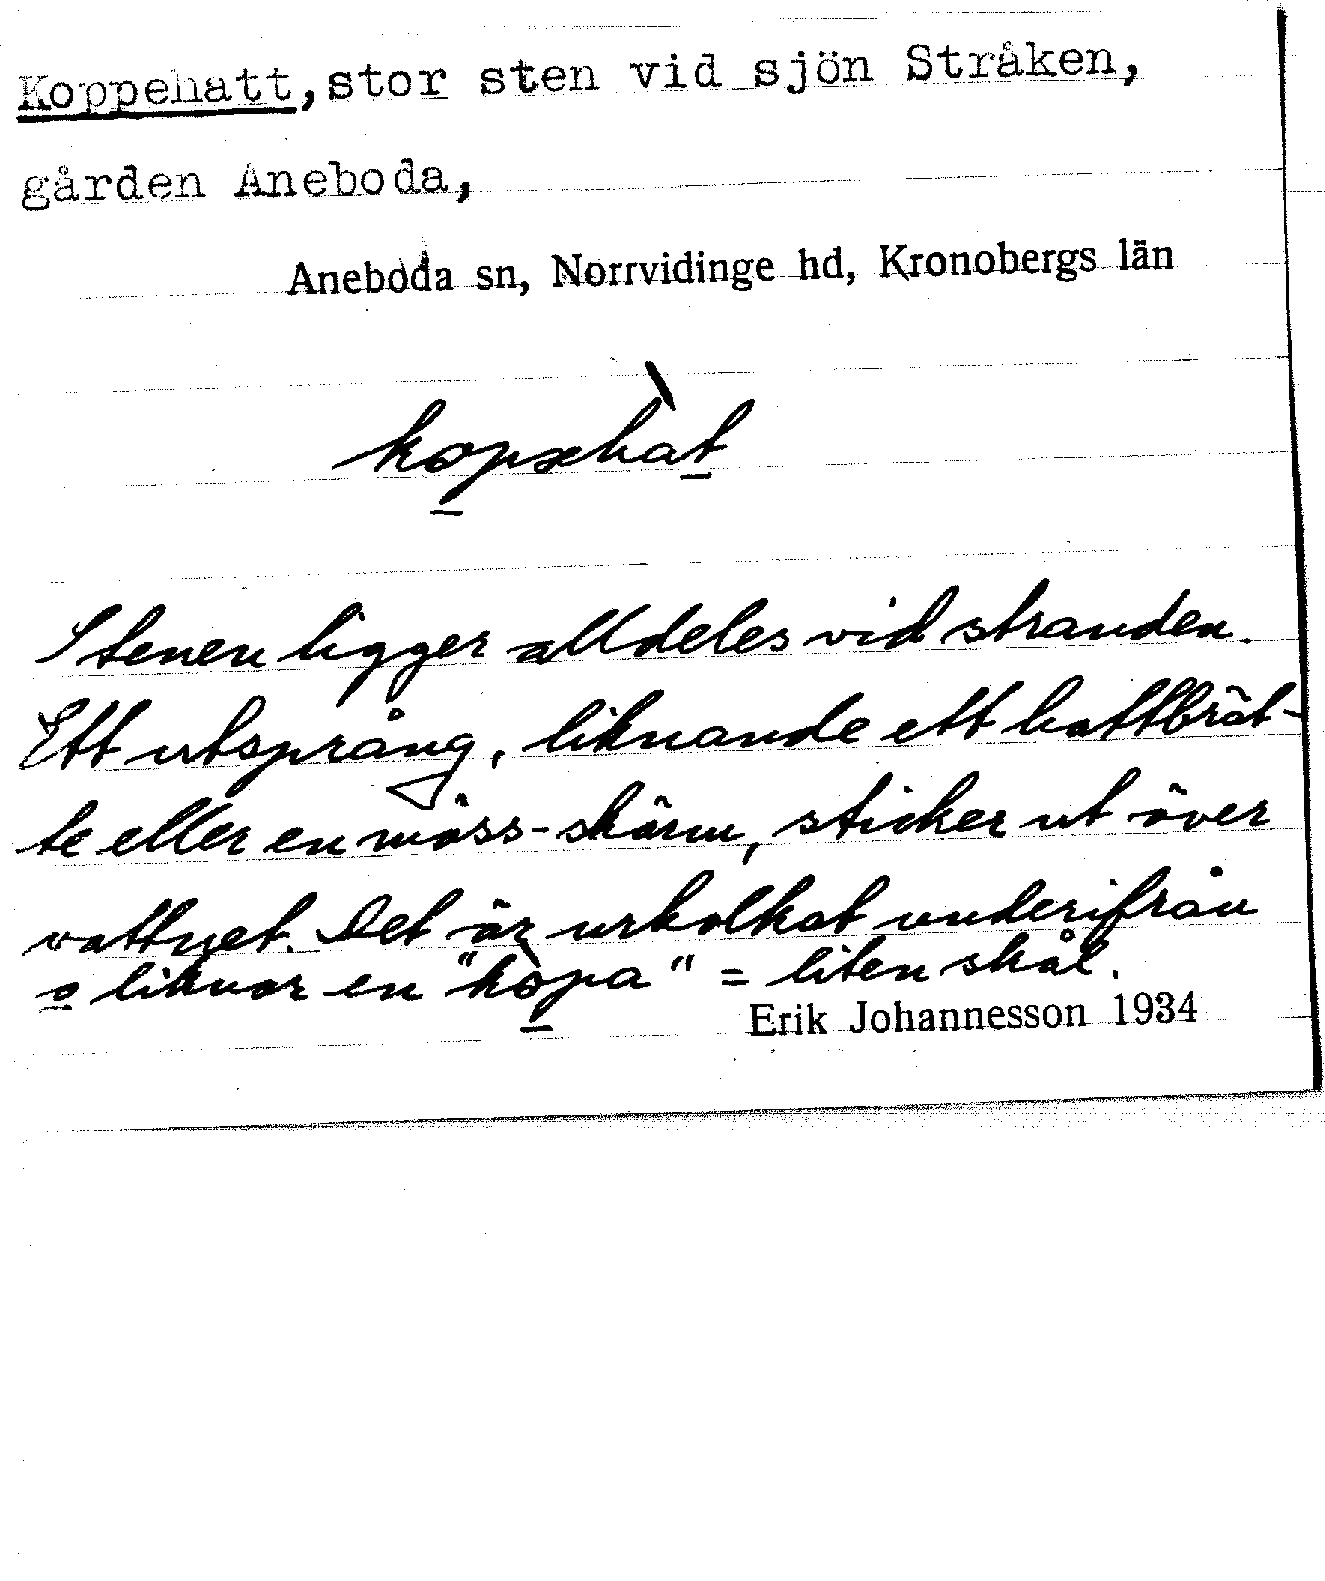 Koppehatt, stor sten vid sjön Stråken,
gården Aneboda,
Aneboda sn, Norrvidinge hd, Kronobergs län
kopæhat
Stenen ligger alldeles vid stranden.
Ett utsprång, liknande ett hattbrät-
te eller en möss-skärm, sticker ut över
vattnet. Det är urholkat underifrån
o liknar en "kopa" = liten skål.
Erik Johannesson 1934